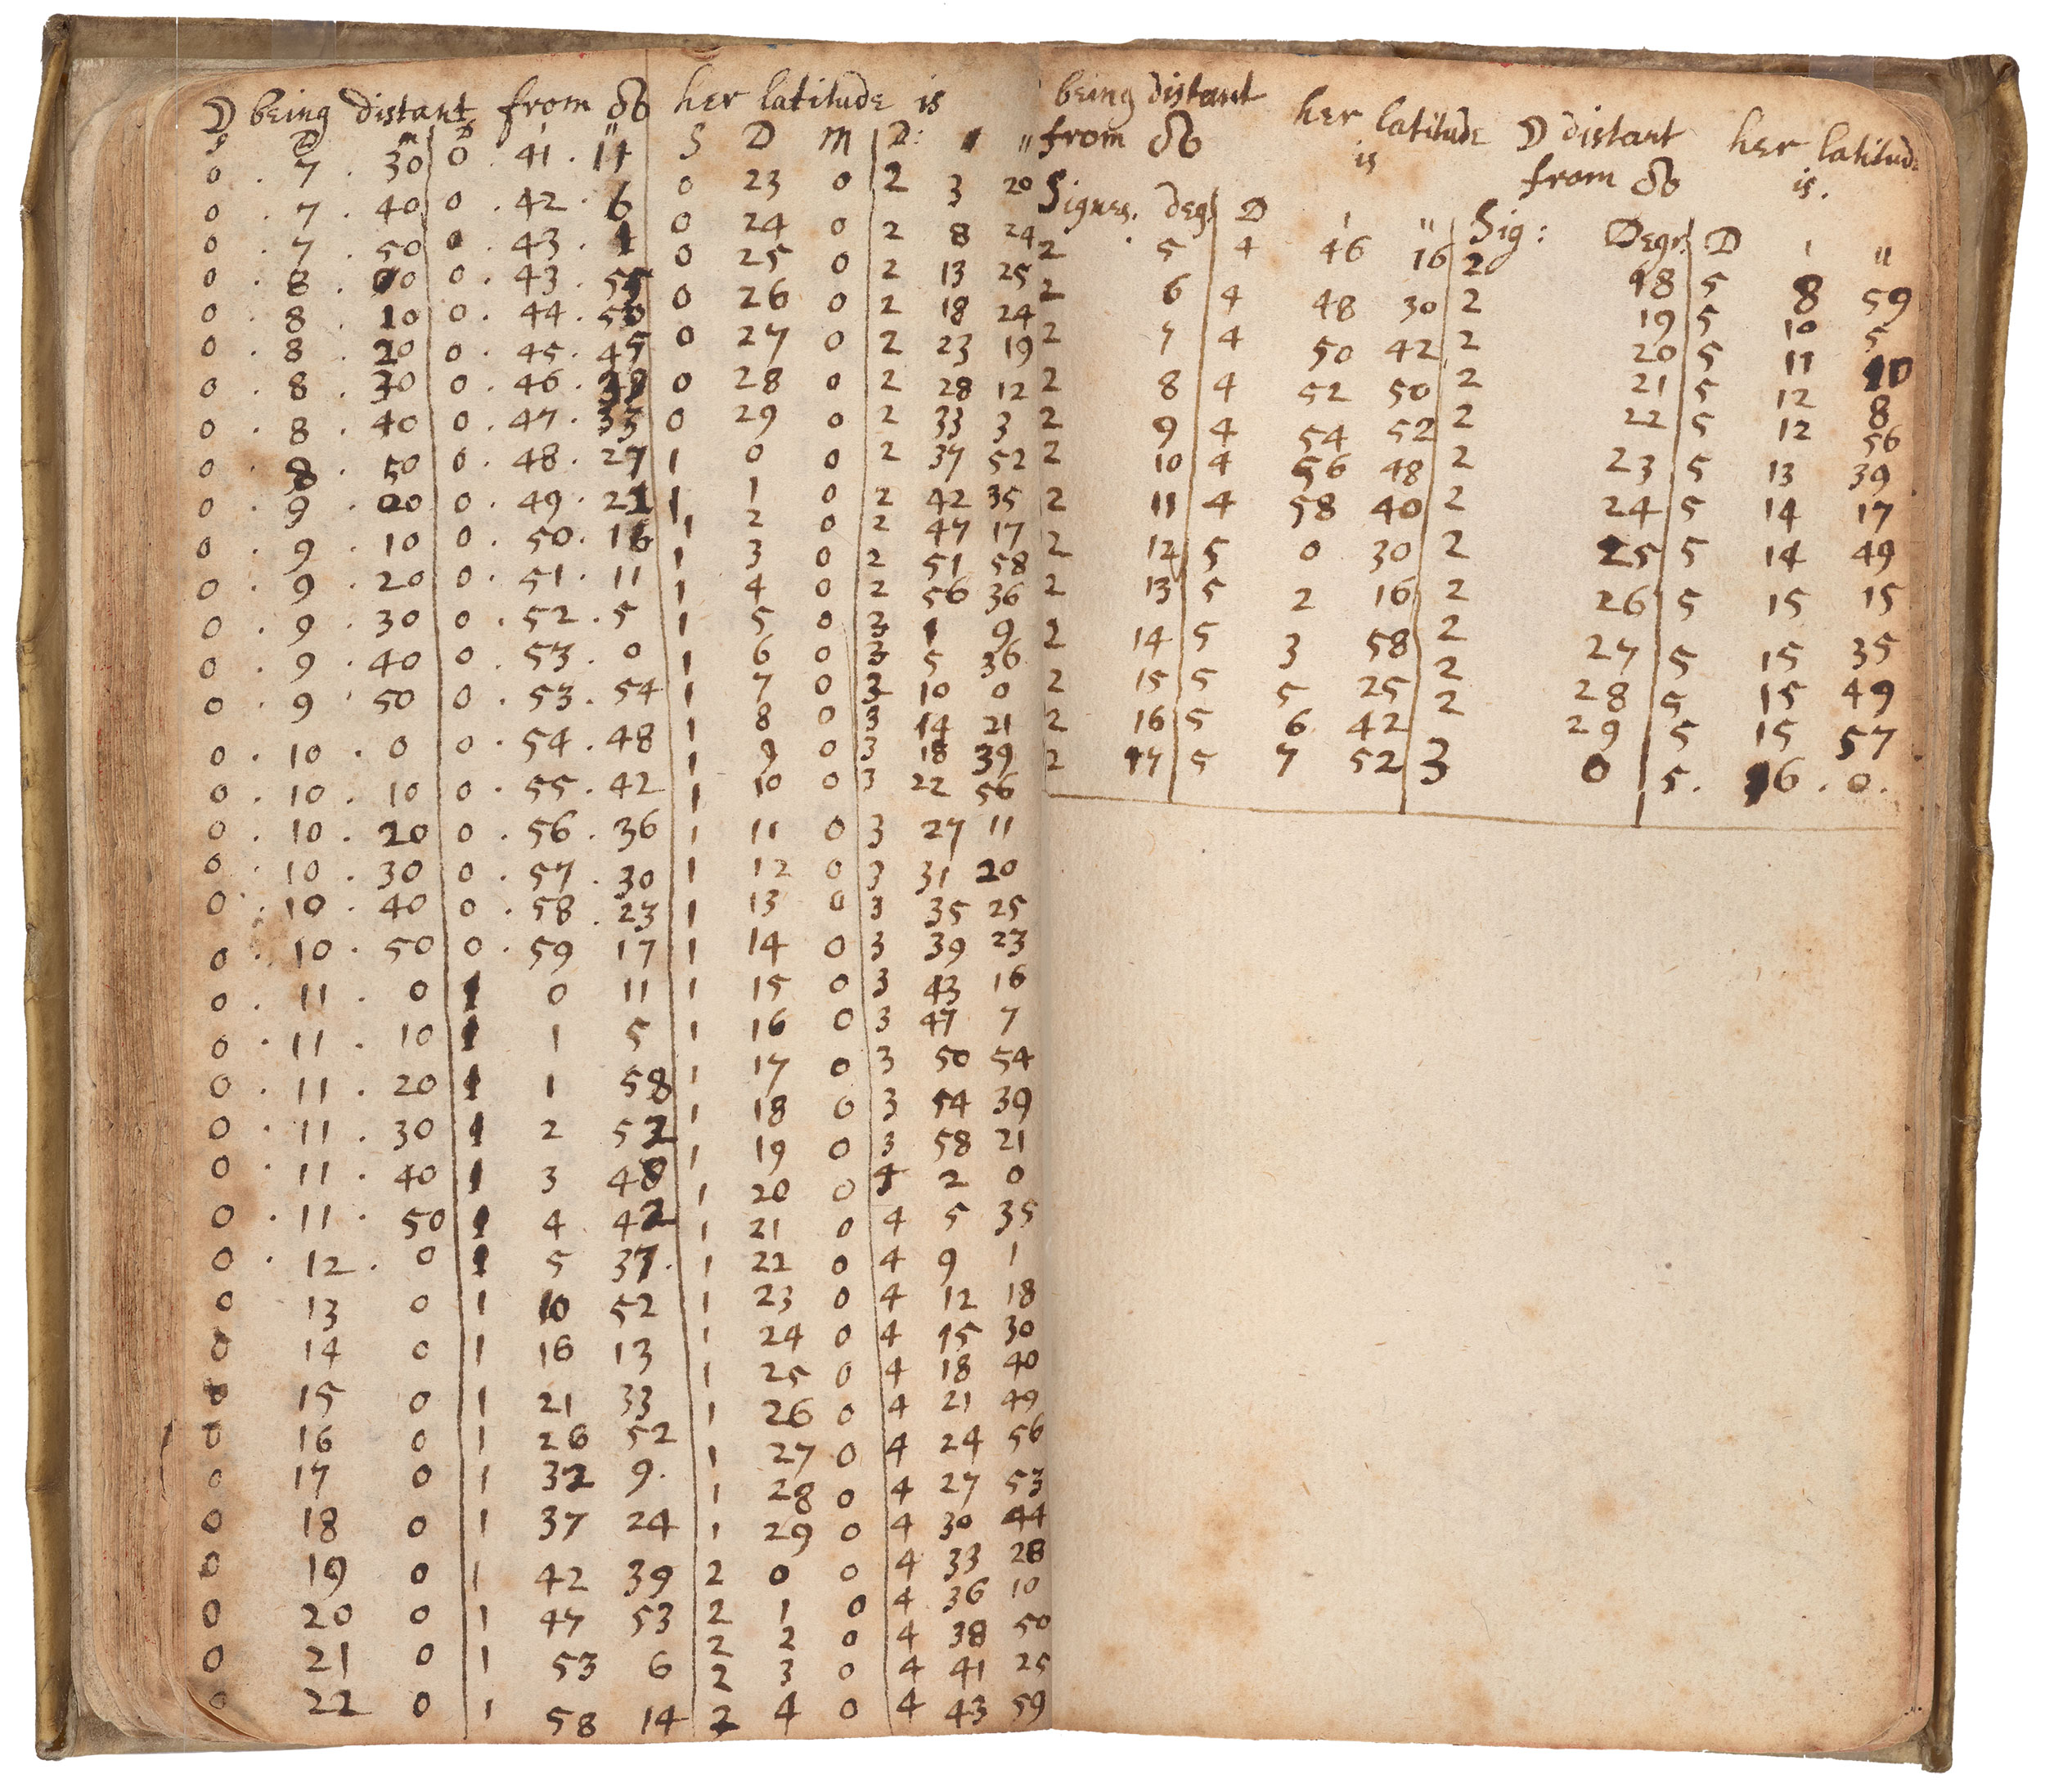 ☽ being distant from ☊ her latitude is
S D m D ' "
0 . 7 . 30 0 . 41 . 14
0 . 7 . 40 0 . 42 . 6
0 . 7 . 50 0 . 43 . 1
0 . 8 . 00 0 . 43 . 55
0 . 8 . 10 0 . 44 . 50
0 . 8 . 20 0 . 45 . 45
0 . 8 . 30 0 . 46 . 39
0 . 8 . 40 0 . 47 . 33
0 . 8 . 50 0 . 48 . 27
0 . 9 . 00 0 . 49 . 21
0 . 9 . 10 0 . 50 . 16
0 . 9 . 20 0 . 51 . 11
0 . 9 . 30 0 . 52 . 5
0 . 9 . 40 0 . 53 . 0
0 . 9 . 50 0 . 53 . 54
0 . 10 . 0 0 . 54 . 48
0 . 10 . 10 0 . 55 . 42
0 . 10 . 20 0 . 56 . 36
0 . 10 . 30 0 . 57 . 30
0 . 10 . 40 0 . 58 . 23
0 . 10 . 50 0 . 59 17
0 . 11 . 0 1 0 11
0 . 11 . 10 1 1 5
0 . 11 . 20 1 1 58
0 . 11 . 30 1 2 52
0 . 11 . 40 1 3 48
0 . 11 . 50 1 4 42
0 . 12 . 0 1 5 37.
0 13 0 1 10 52
0 14 0 1 16 13
0 15 0 1 21 33
0 16 0 1 26 52
0 17 0 1 32 9.
0 18 0 1 37 24
0 19 0 1 42 39
0 20 0 1 47 53
0 21 0 1 53 6
0 22 0 1 58 14
S D M D: ' "
0 23 0 2 3 20
0 24 0 2 8 24
0 25 0 2 13 25
0 26 0 2 18 24
0 27 0 2 23 19
0 28 0 2 28 12
0 29 0 2 33 3
1 0 0 2 37 52
1 1 0 2 42 35
1 2 0 2 47 17
1 3 0 2 51 58
1 4 0 2 56 36
1 5 0 3 1 9
1 6 0 3 5 36
1 7 0 3 10 0
1 8 0 3 14 21
1 9 0 3 18 39
1 10 0 3 22 56
1 11 0 3 27 11
1 12 0 3 31 20
1 13 0 3 35 25
1 14 0 3 39 23
1 15 0 3 43 16
1 16 0 3 47 7
1 17 0 3 50 54
1 18 0 3 54 39
1 19 0 3 58 21
1 20 0 4 2 0
1 21 0 4 5 35
1 22 0 4 9 1
1 23 0 4 12 18
1 24 0 4 15 30
1 25 0 4 18 40
1 26 0 4 21 49
1 27 0 4 24 56
1 28 0 4 27 53
1 29 0 4 30 44
2 0 0 4 33 28
2 1 0 4 36 10
2 2 0 4 38 50
2 3 0 4 41 25
2 4 0 4 43 59
being distant from ☊ her latitude is
Signes. deg. D ' "
2 5 4 46 16
2 6 4 48 30
2 7 4 50 42
2 8 4 52 50
2 9 4 54 52
2 10 4 56 48
2 11 4 58 40
2 12 5 0 30
2 13 5 2 16
2 14 5 3 58
2 15 5 5 25
2 16 5 6 42
2 17 5 7 52
☽ distant from ☊ her latitude is.
Sig: Degr. D ' "
2 18 5 8 59
2 19 5 10 5
2 20 5 11 10
2 21 5 12 8
2 22 5 12 56
2 23 5 13 39
2 24 5 14 17
2 25 5 14 49
2 26 5 15 15
2 27 5 15 35
2 28 5 15 49
2 29 5 15 57
3 0 5. 16 . 0.